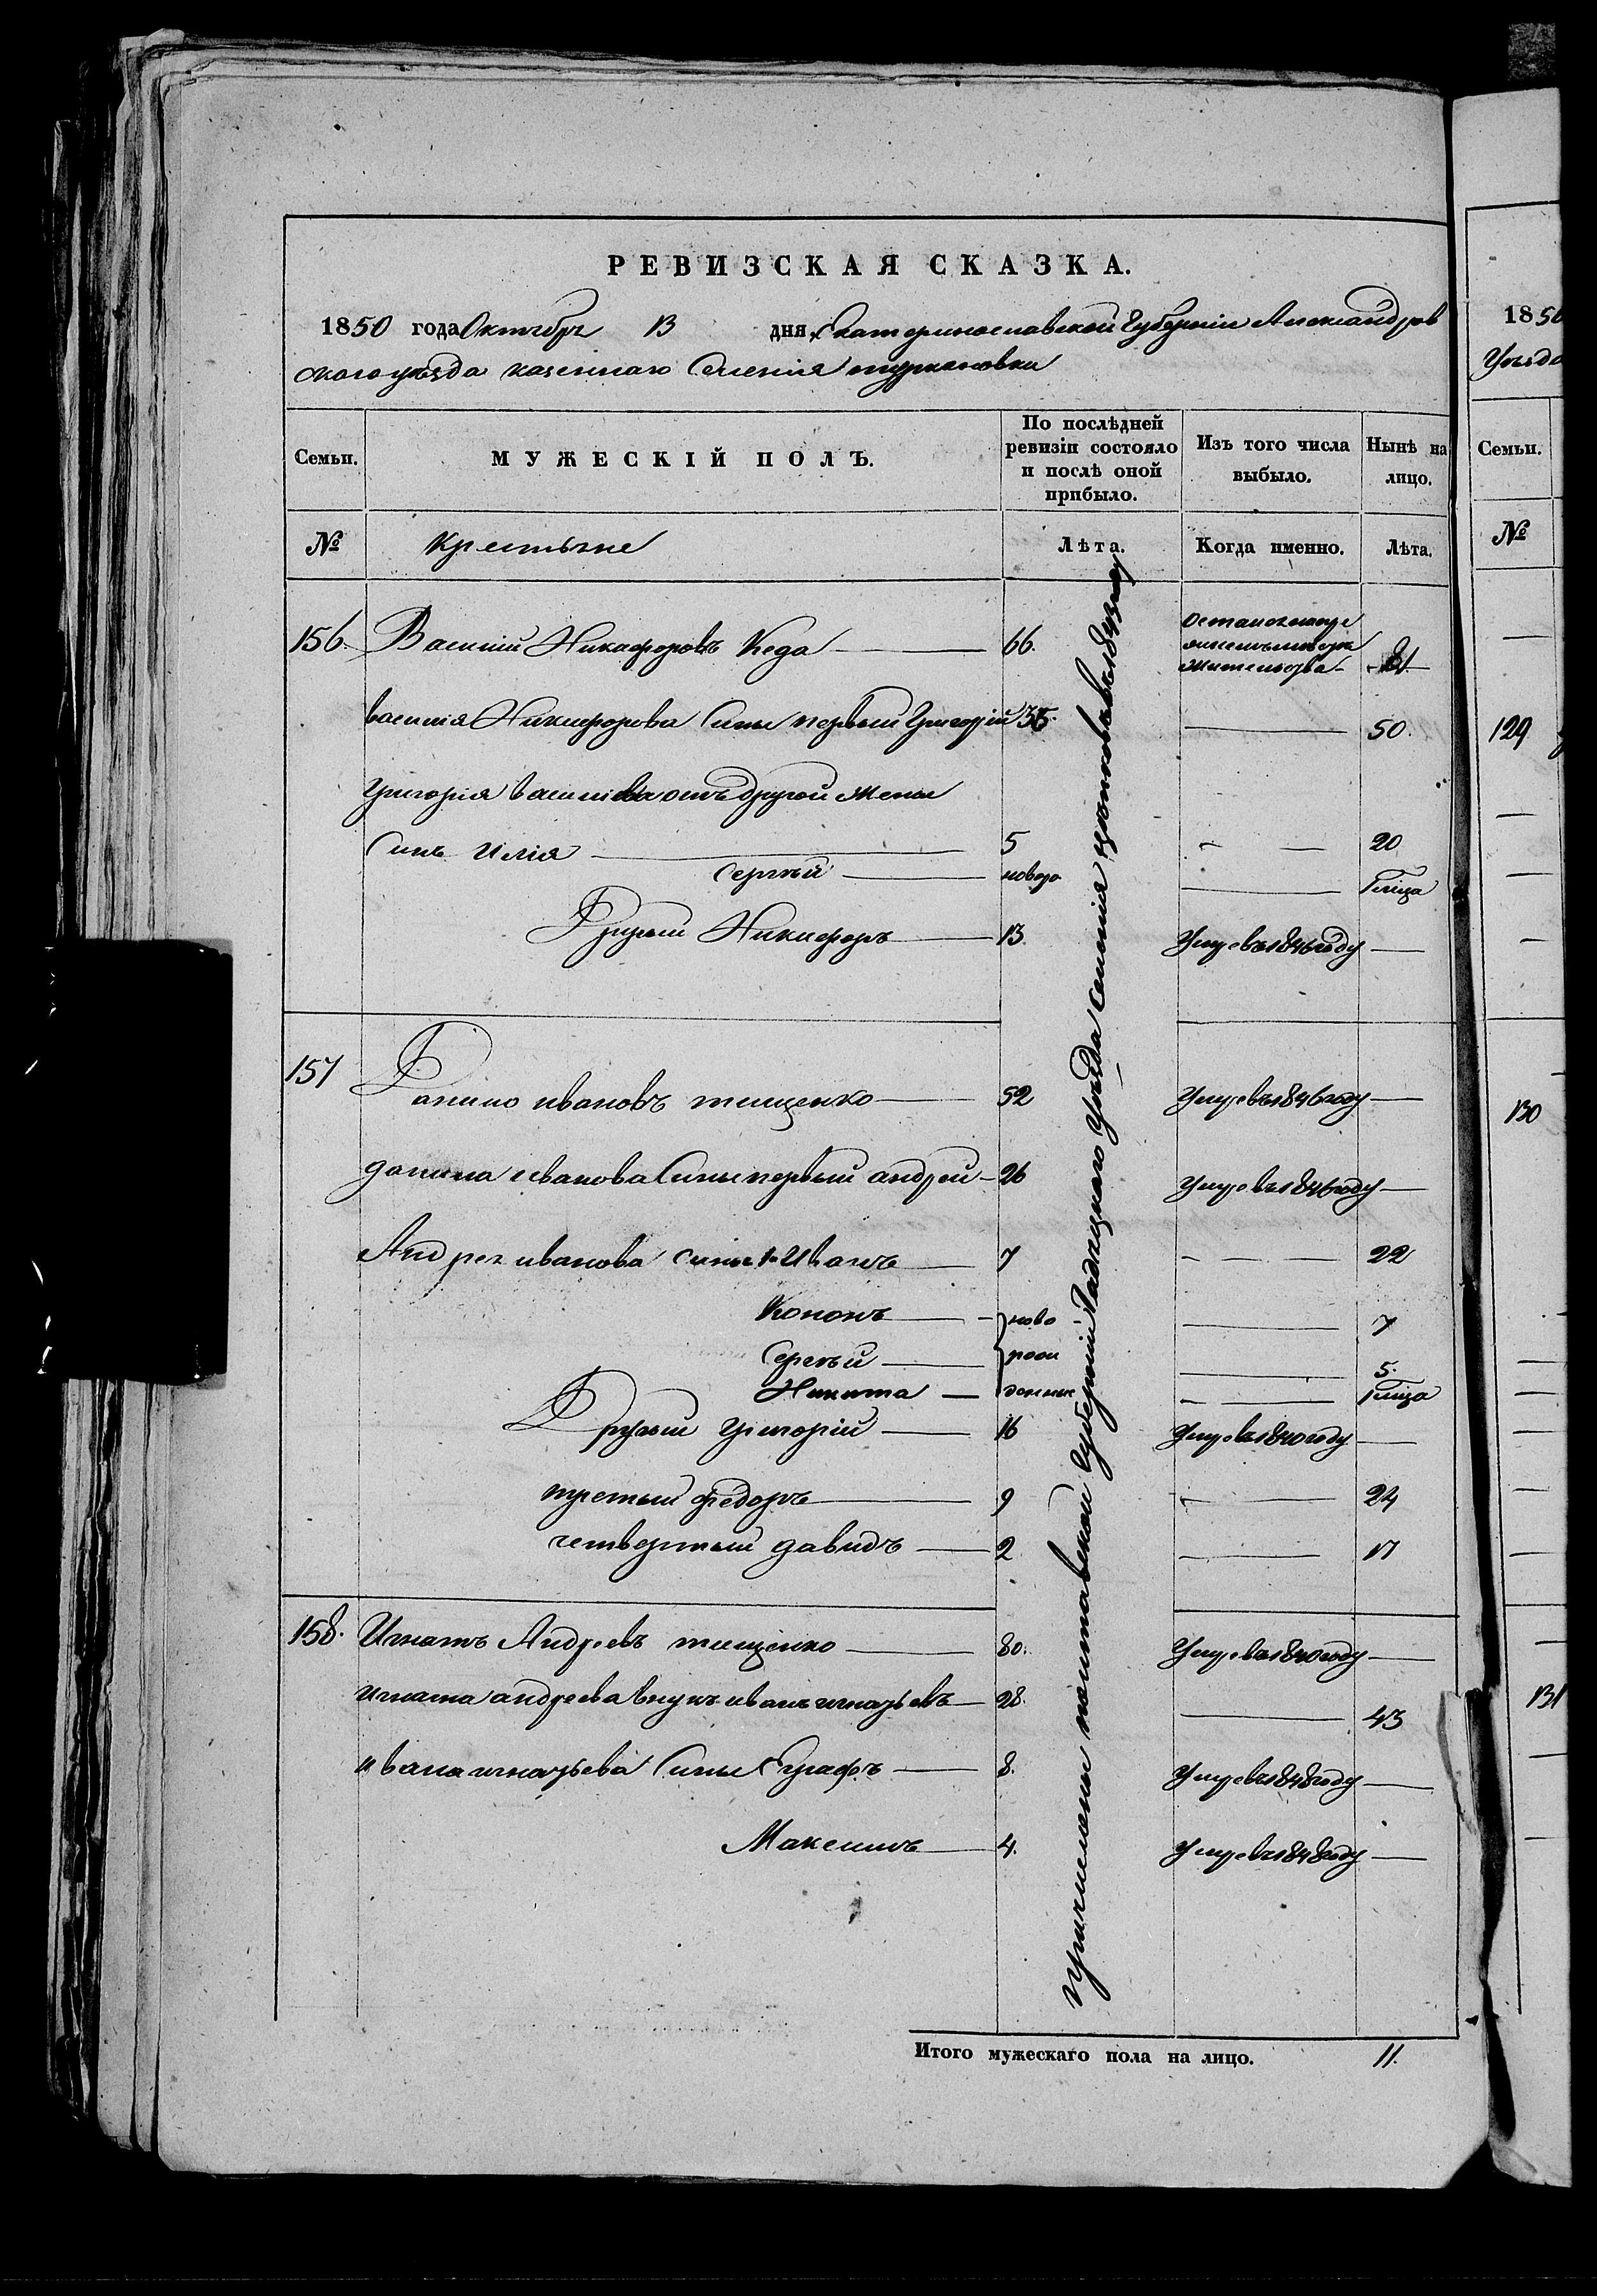 РЕВИЗСКАЯ СКАЗКА.
1850 года Октября 13 дня Екатеринославской Губерніи Александров
скаго уѣзда казеннаго Селенія туркеновки
Семьи. МУЖЕСКІЙ ПОЛЪ. По послѣдней ревизіи состояло и послѣ оной прибыло. Изъ того числа выбыло. Нынѣ на лицо.
№ Крестьяне Лѣта. Когда именно. Лѣта.
156. Василій Никифоровъ Кеда 66. жительства 81
василія Никифорова Сины первый Григорій 35. 50.
Григорія васильева отъ другой жены
Синъ Илія 5 20
Сергѣй новоро 1 мѣсца
Другый Никифоръ 13. Умре въ 1846 году
157 Данило ивановъ тищенко 52 Умре въ 1846 году
данила иванова Сины первый андрей 26 Умре въ 1846 году
Андрея иванова сины 1й Иванъ 7 22
Кононъ ново 7
Сергѣй рож 5.
Никита денные 1 мѣсца
Другый Григорій 16 Умре въ 1840 году
третый федоръ 9 24
четвертый давидъ 2 17
158. Игнатъ Андреевъ тищенко 80. Умре въ 1840 году
игната андреева внукъ иванъ игнатьевъ 28. 43
ивана игнатьева Сины Евграфъ 8. Умре въ 1848 году
Максимъ 4. Умре въ 1848 году
причислены полтавской Губерніи Гадяцкаго Уѣзда Селенія въ 1843 году
Итого мужескаго пола на лицо. 11.
1850
Уѣзда
Семьи.
№
129
130
131